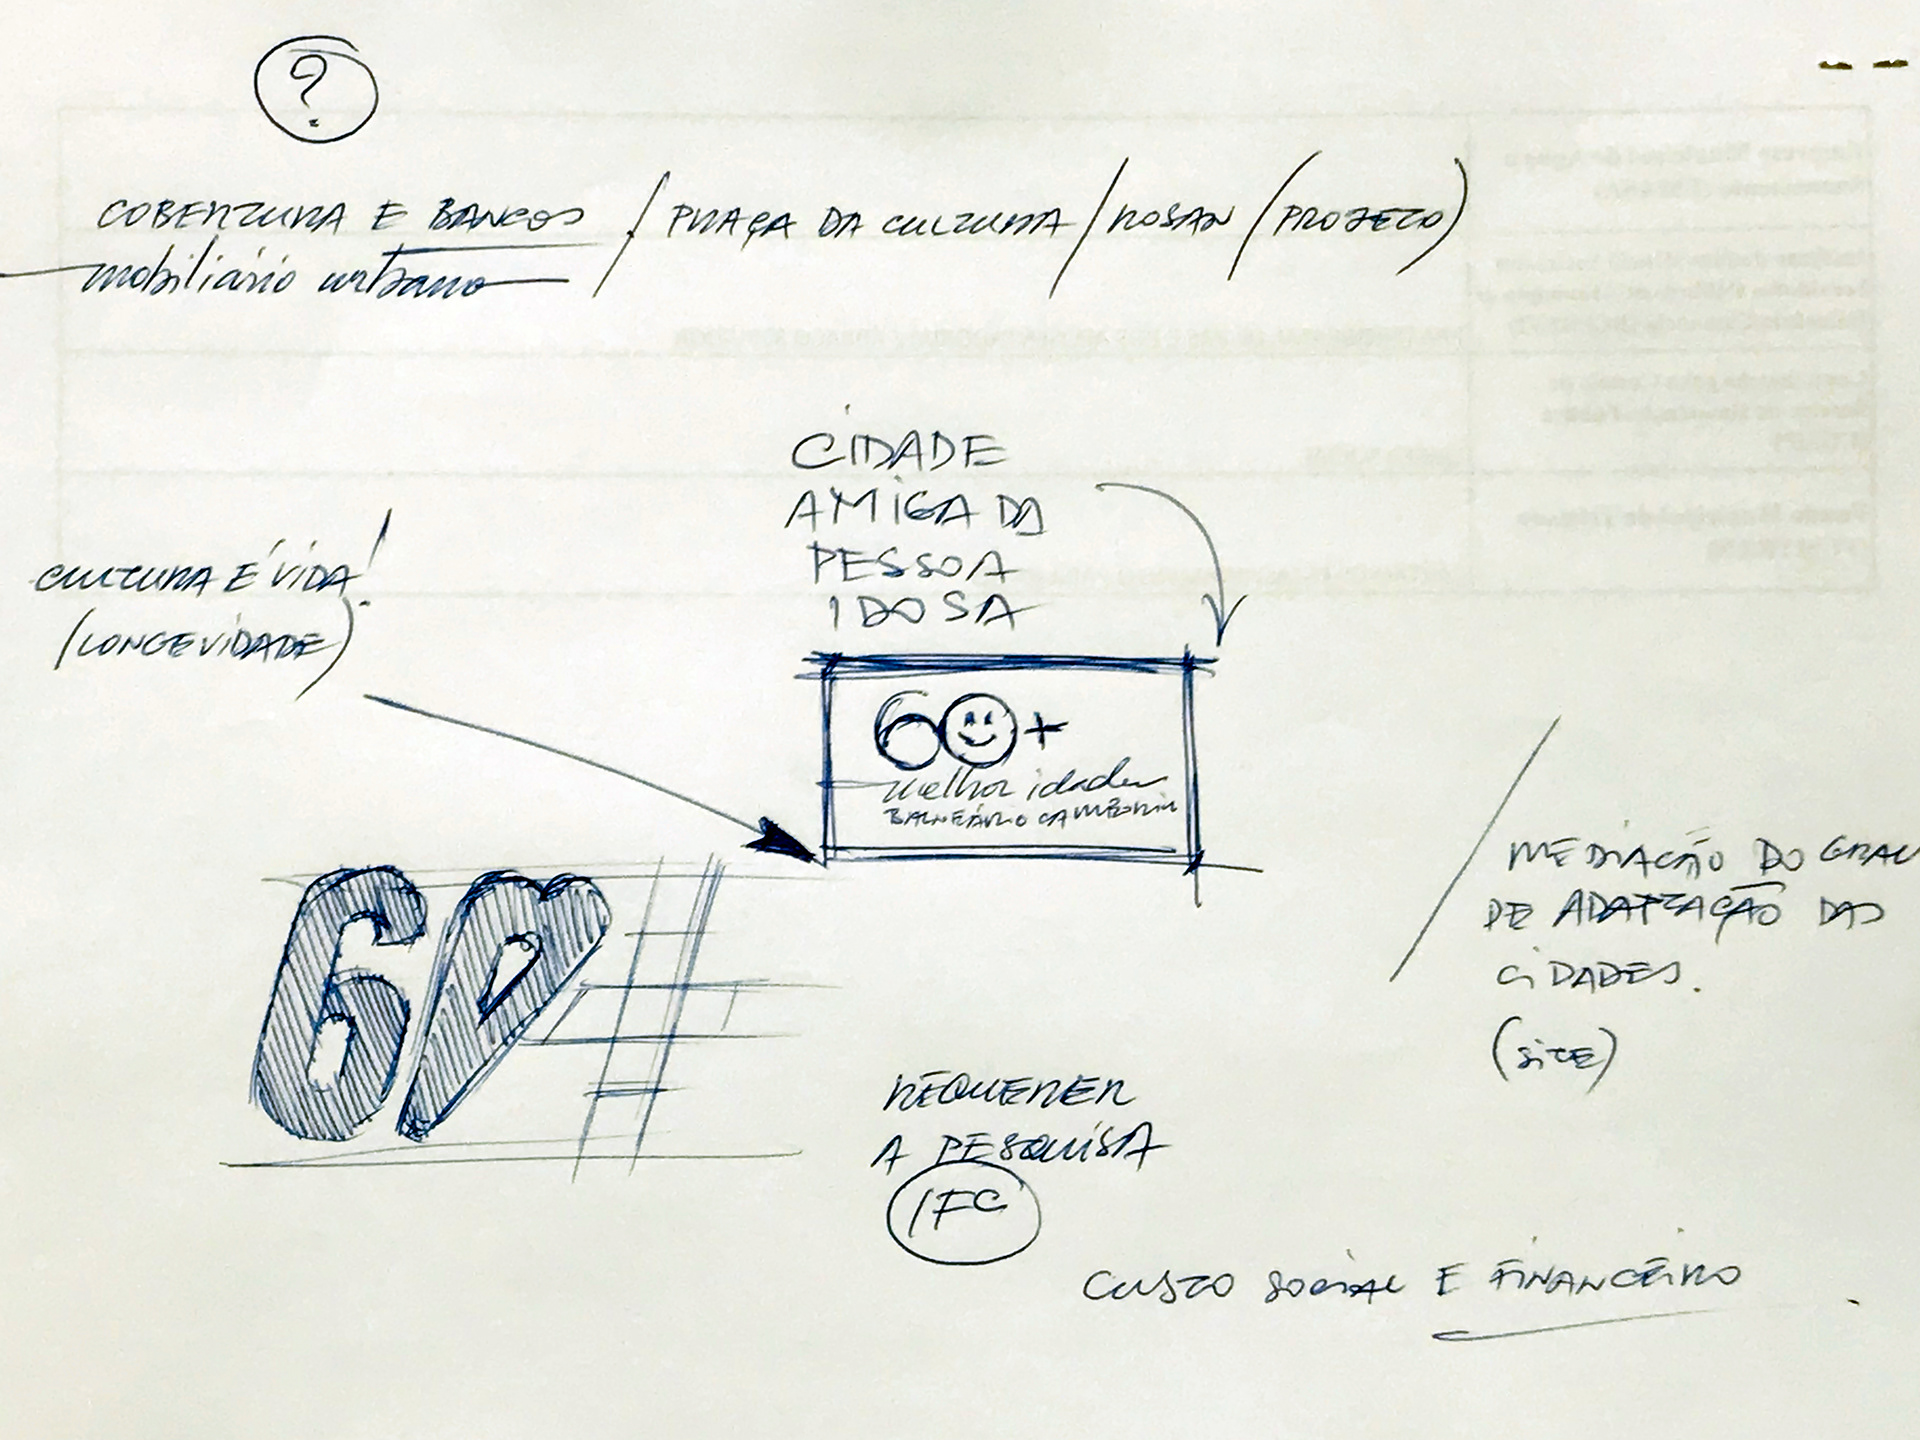 ?
COBERTURA E BANCOS / PRAÇA DA CULTURA / ROSAN (PROJETO)
mobiliário urbano
CIDADE
AMIGA DA
PESSOA
IDOSA
CULTURA É VIDA!
(LONGEVIDADE)
60+
melhor idade
BALNEÁRIO CAMBORIÚ
60+
MEDIAÇÃO DO GRAU
DE ADAPTAÇÃO DAS
CIDADES.
(SITE)
REQUERER
A PESQUISA
IFC
CUSTO SOCIAL E FINANCEIRO